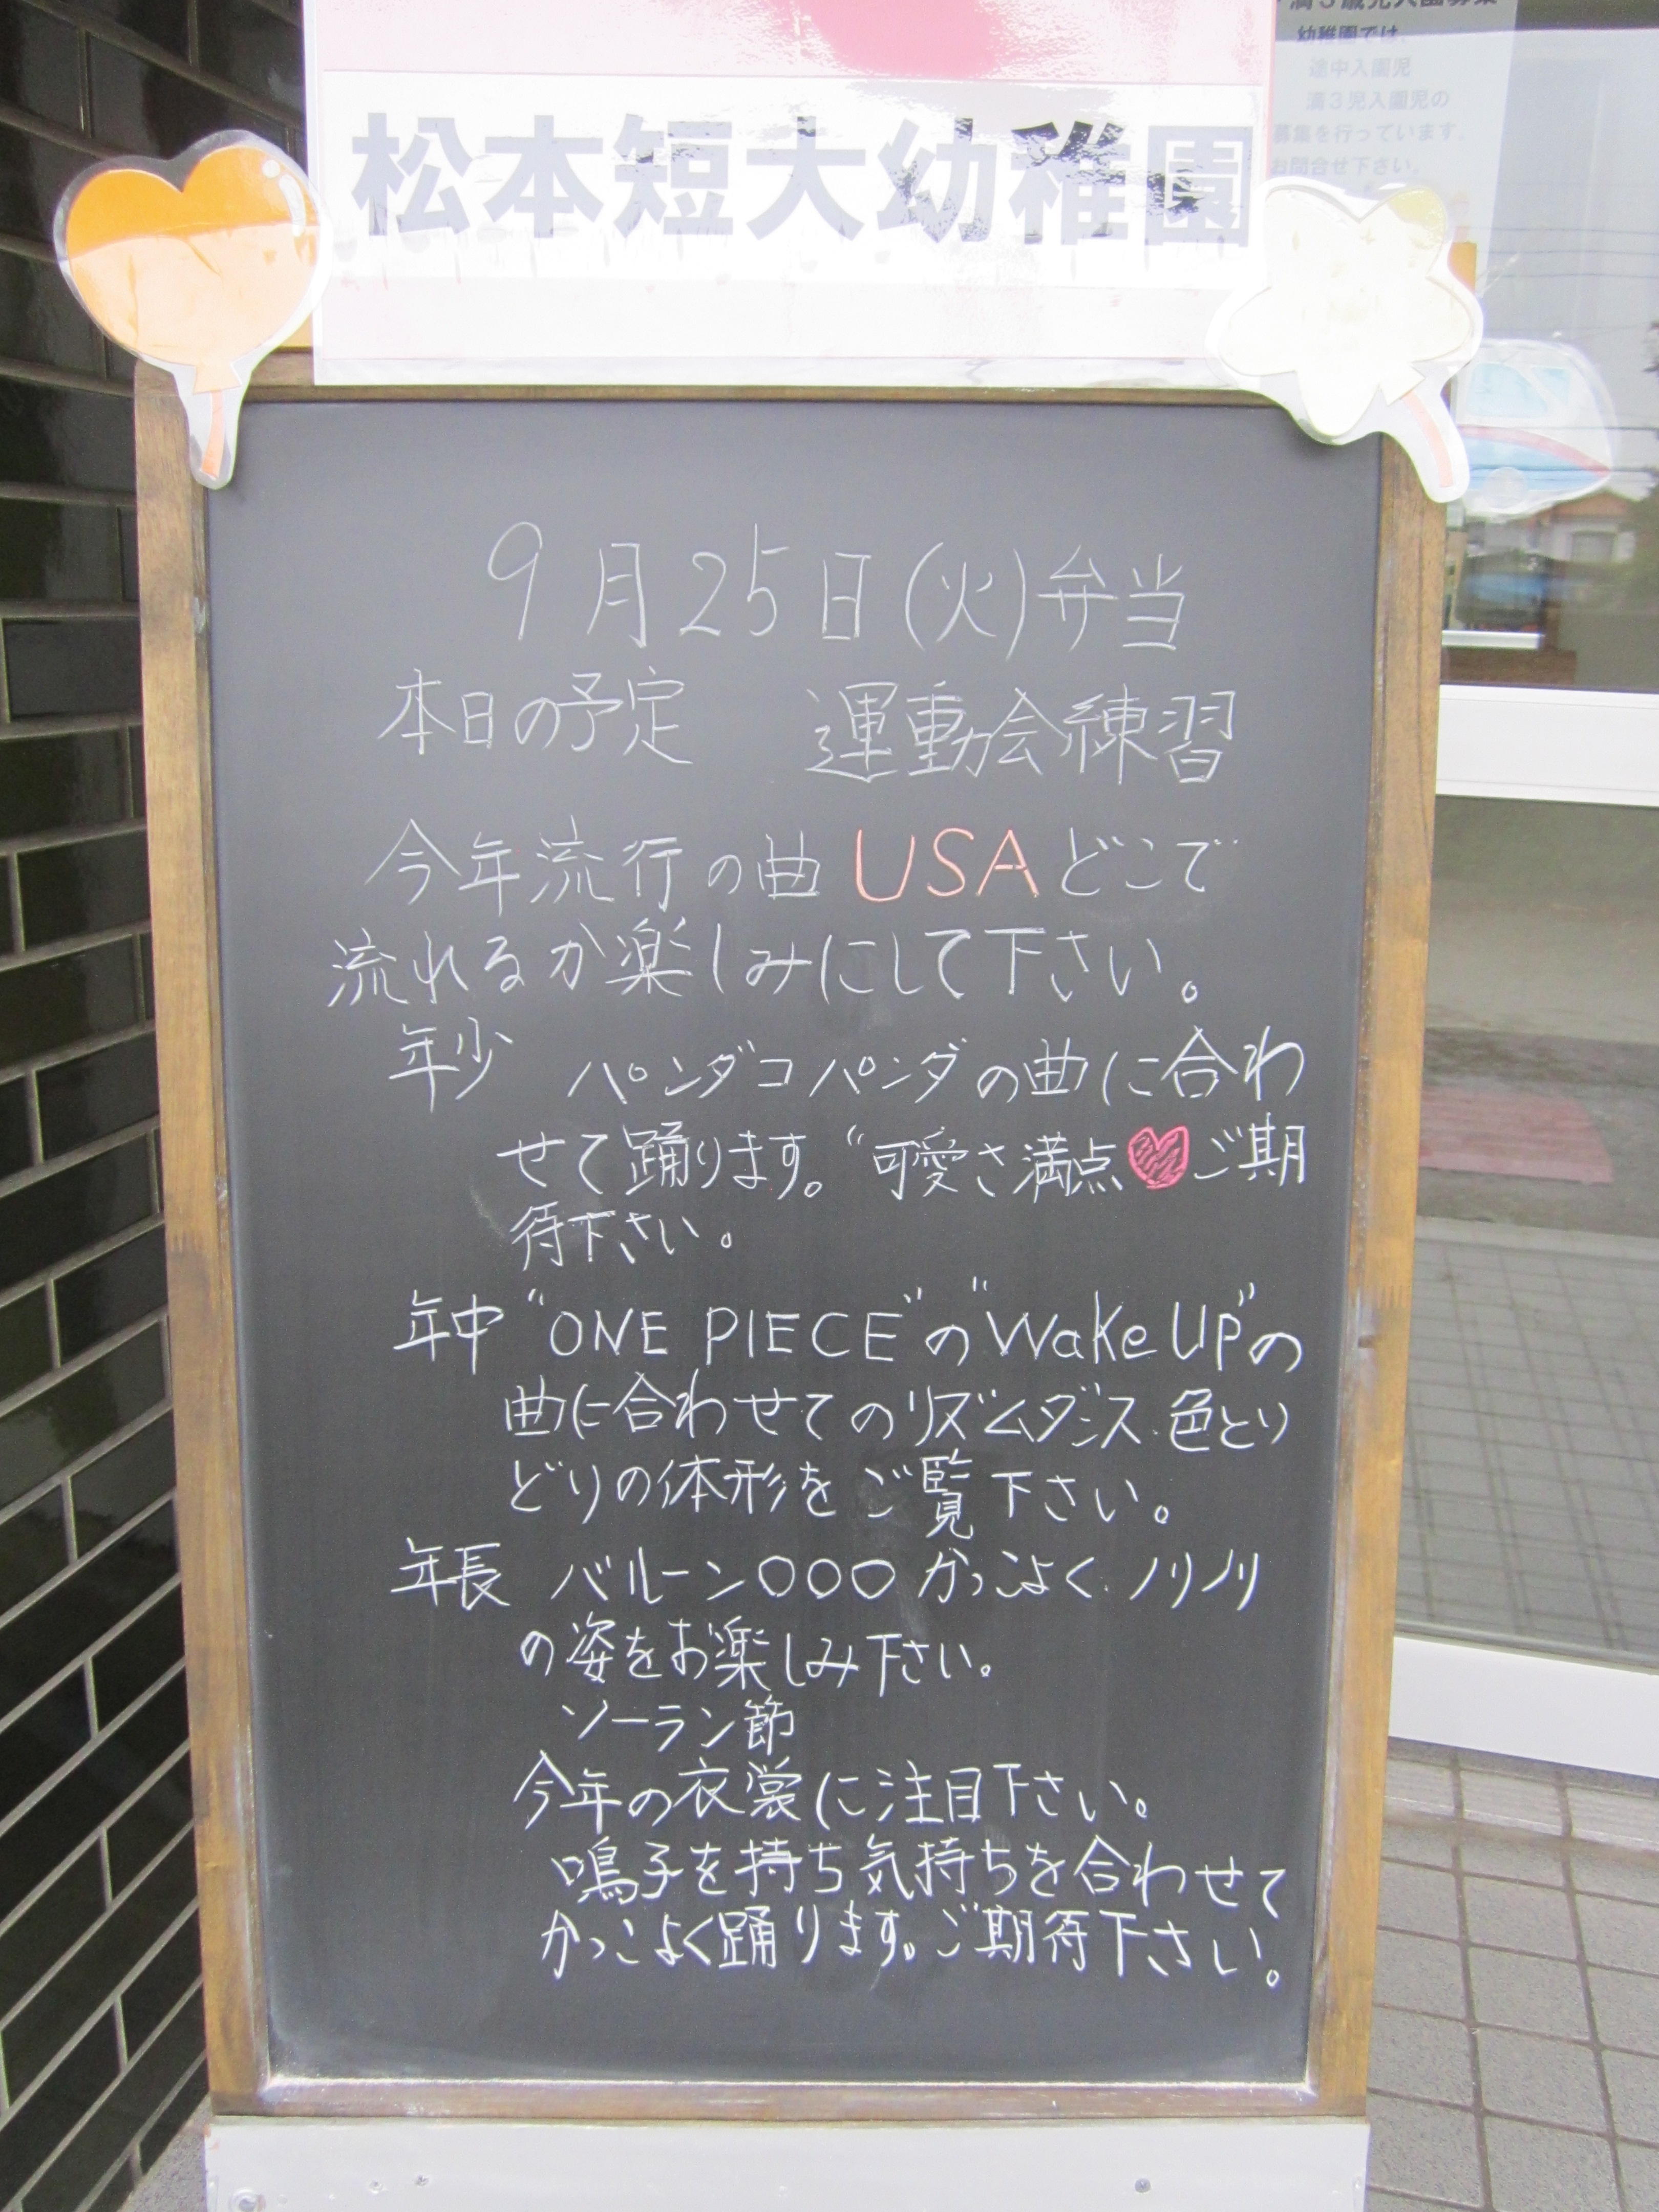 松本短大幼稚園
幼稚園では、
途中入園児
満3児入園児の
募集を行っています。
お問合せ下さい。
9月25日(火)弁当
本日の予定 運動会練習
今年流行の曲 USA どこで
流れるか楽しみにして下さい。
年少 パンダコパンダの曲に合わ
せて踊ります。“可愛さ満点♥ご期
待下さい。
年中“ONE PIECE”の“Wake UP”の
曲に合わせてのリズムダンス.色とり
どりの体形をご覧下さい。
年長 バルーン○○○かっこよく.ノリノリ
の姿をお楽しみ下さい。
ソーラン節
今年の衣裳に注目下さい。
鳴子を持ち気持ちを合わせて
かっこよく踊ります。ご期待下さい。